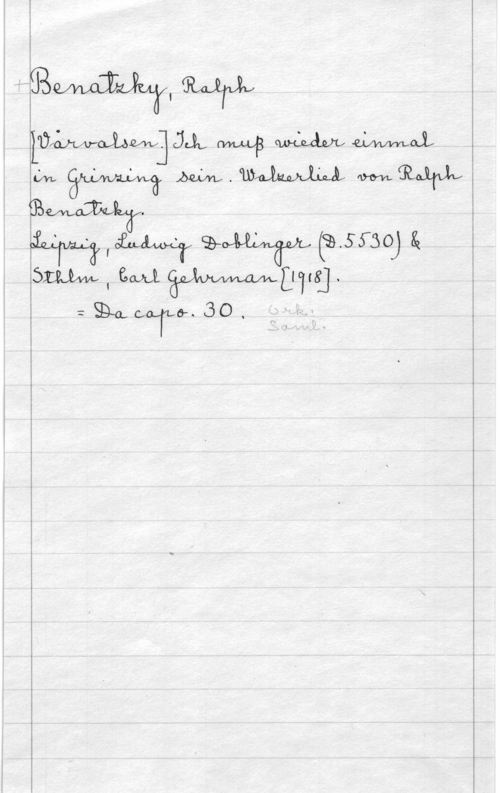 + Benatzky, Ralph
[Vårvalsen.] Ich muß wieder einmal
in Grinzing sein. Walzerlied von Ralph
Benatzky.
Leipzig, Ludwig Doblinger (D.5530) &
Sthlm, Carl Gehrman [1918].
= Da capo. 30. Ork.
Saml.